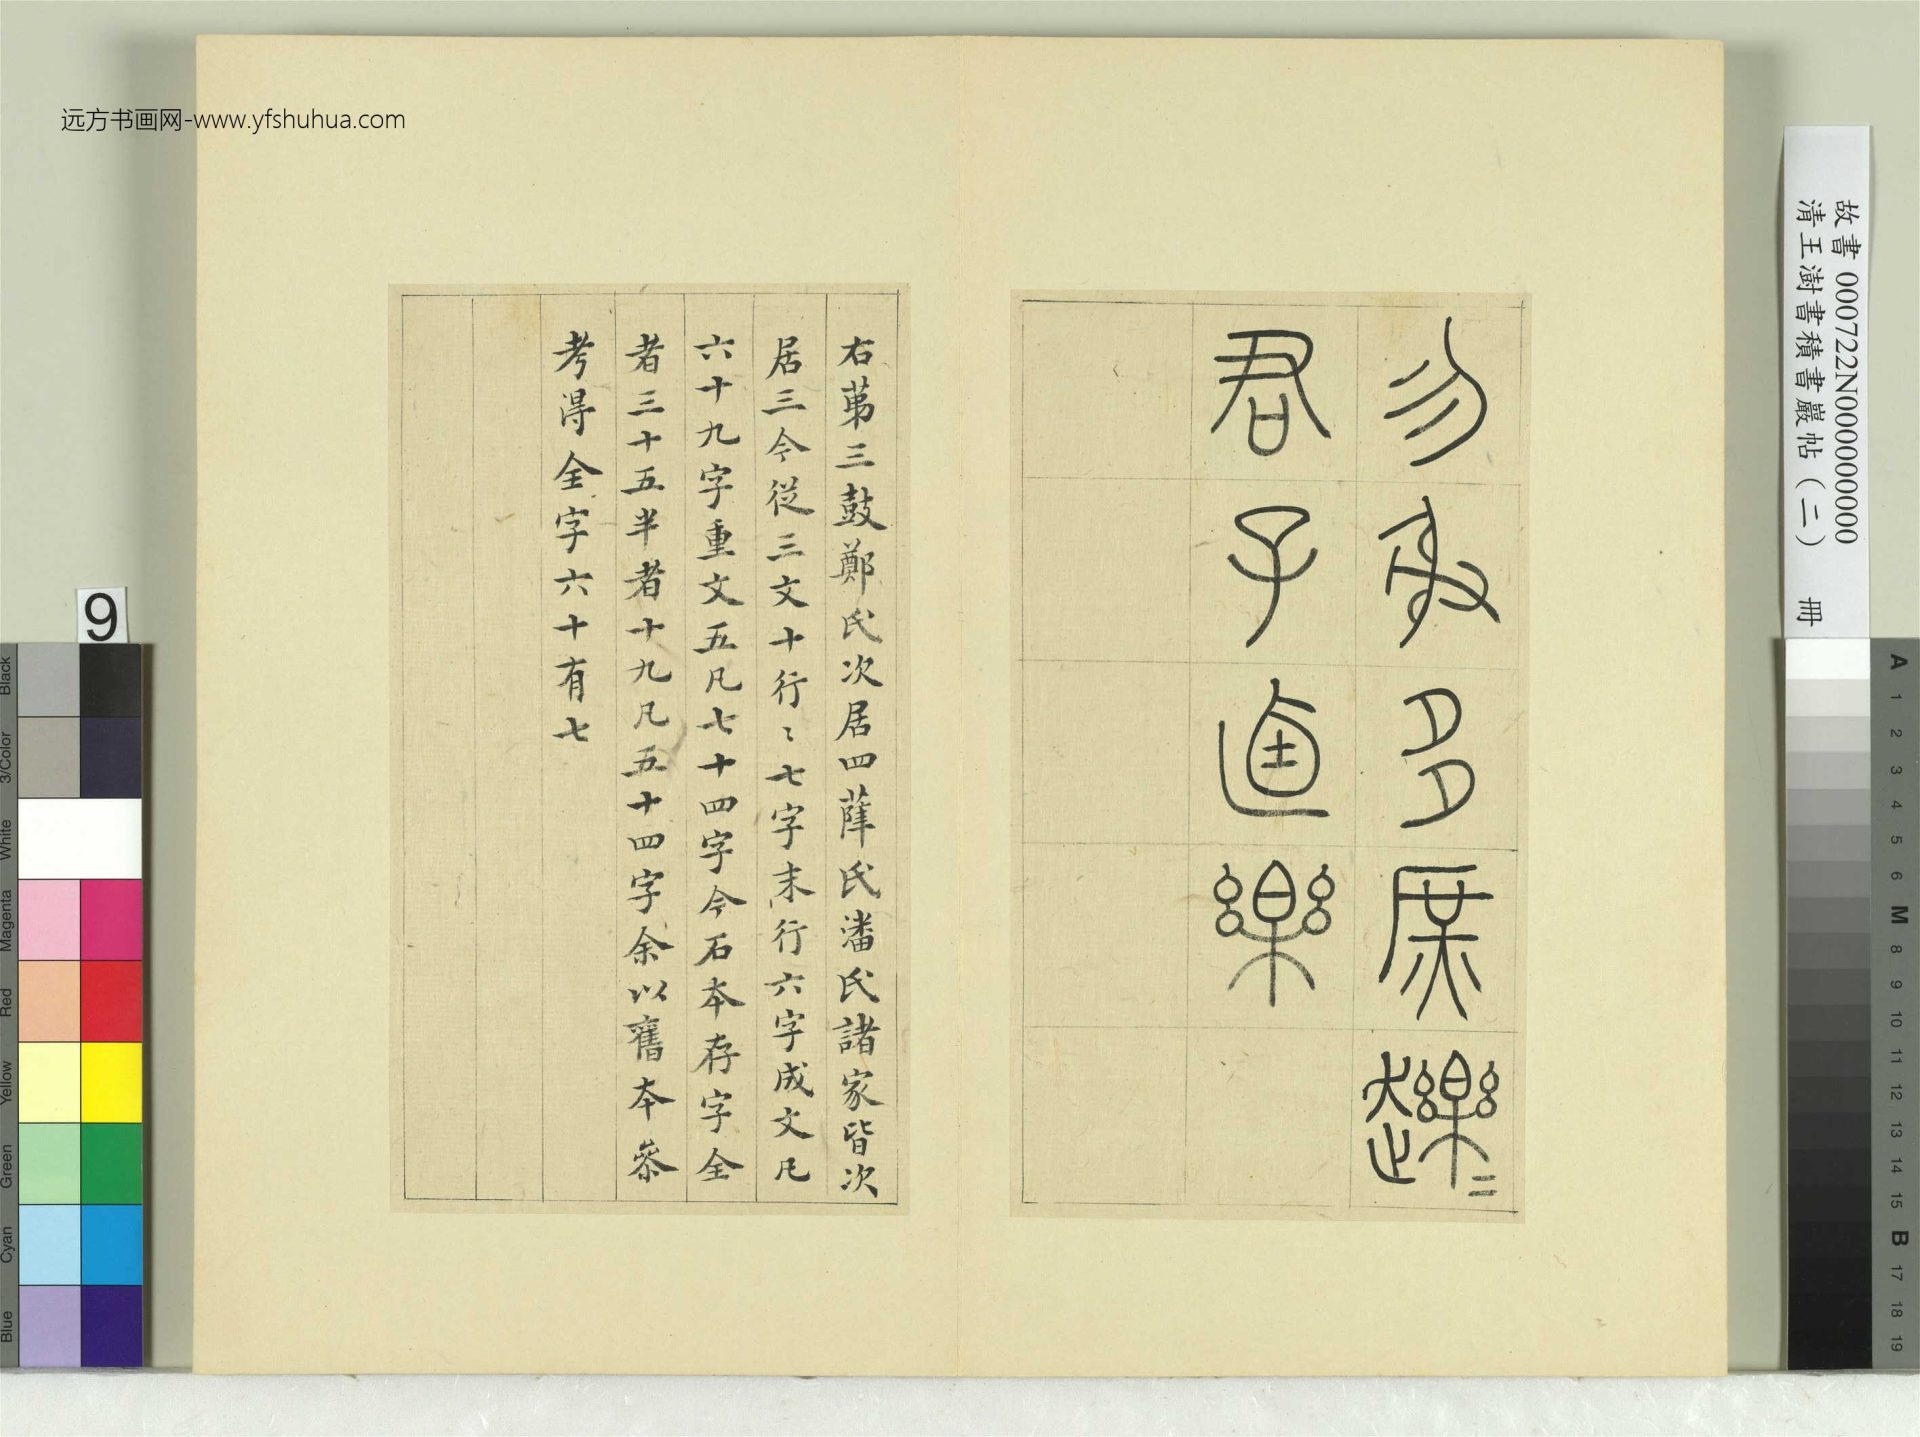 远方书画网-www.yfshuhua.com
故書 000722N000000000
清王澍書積書巖帖（二） 冊
勿 多庶
君子逌樂
右苐三鼓鄭氏次居四薛氏潘氏諸家皆次
居三今從三文十行〻七字末行六字成文凡
六十九字重文五凡七十四字今石本存字全
者三十五半者十九凡五十四字余以舊本叅
考得全字六十有七
9
Black
3/Color
White
Magenta
Red
Yellow
Green
Cyan
Blue
A
1
2
3
4
5
6
M
8
9
10
11
12
13
14
15
B
17
18
19